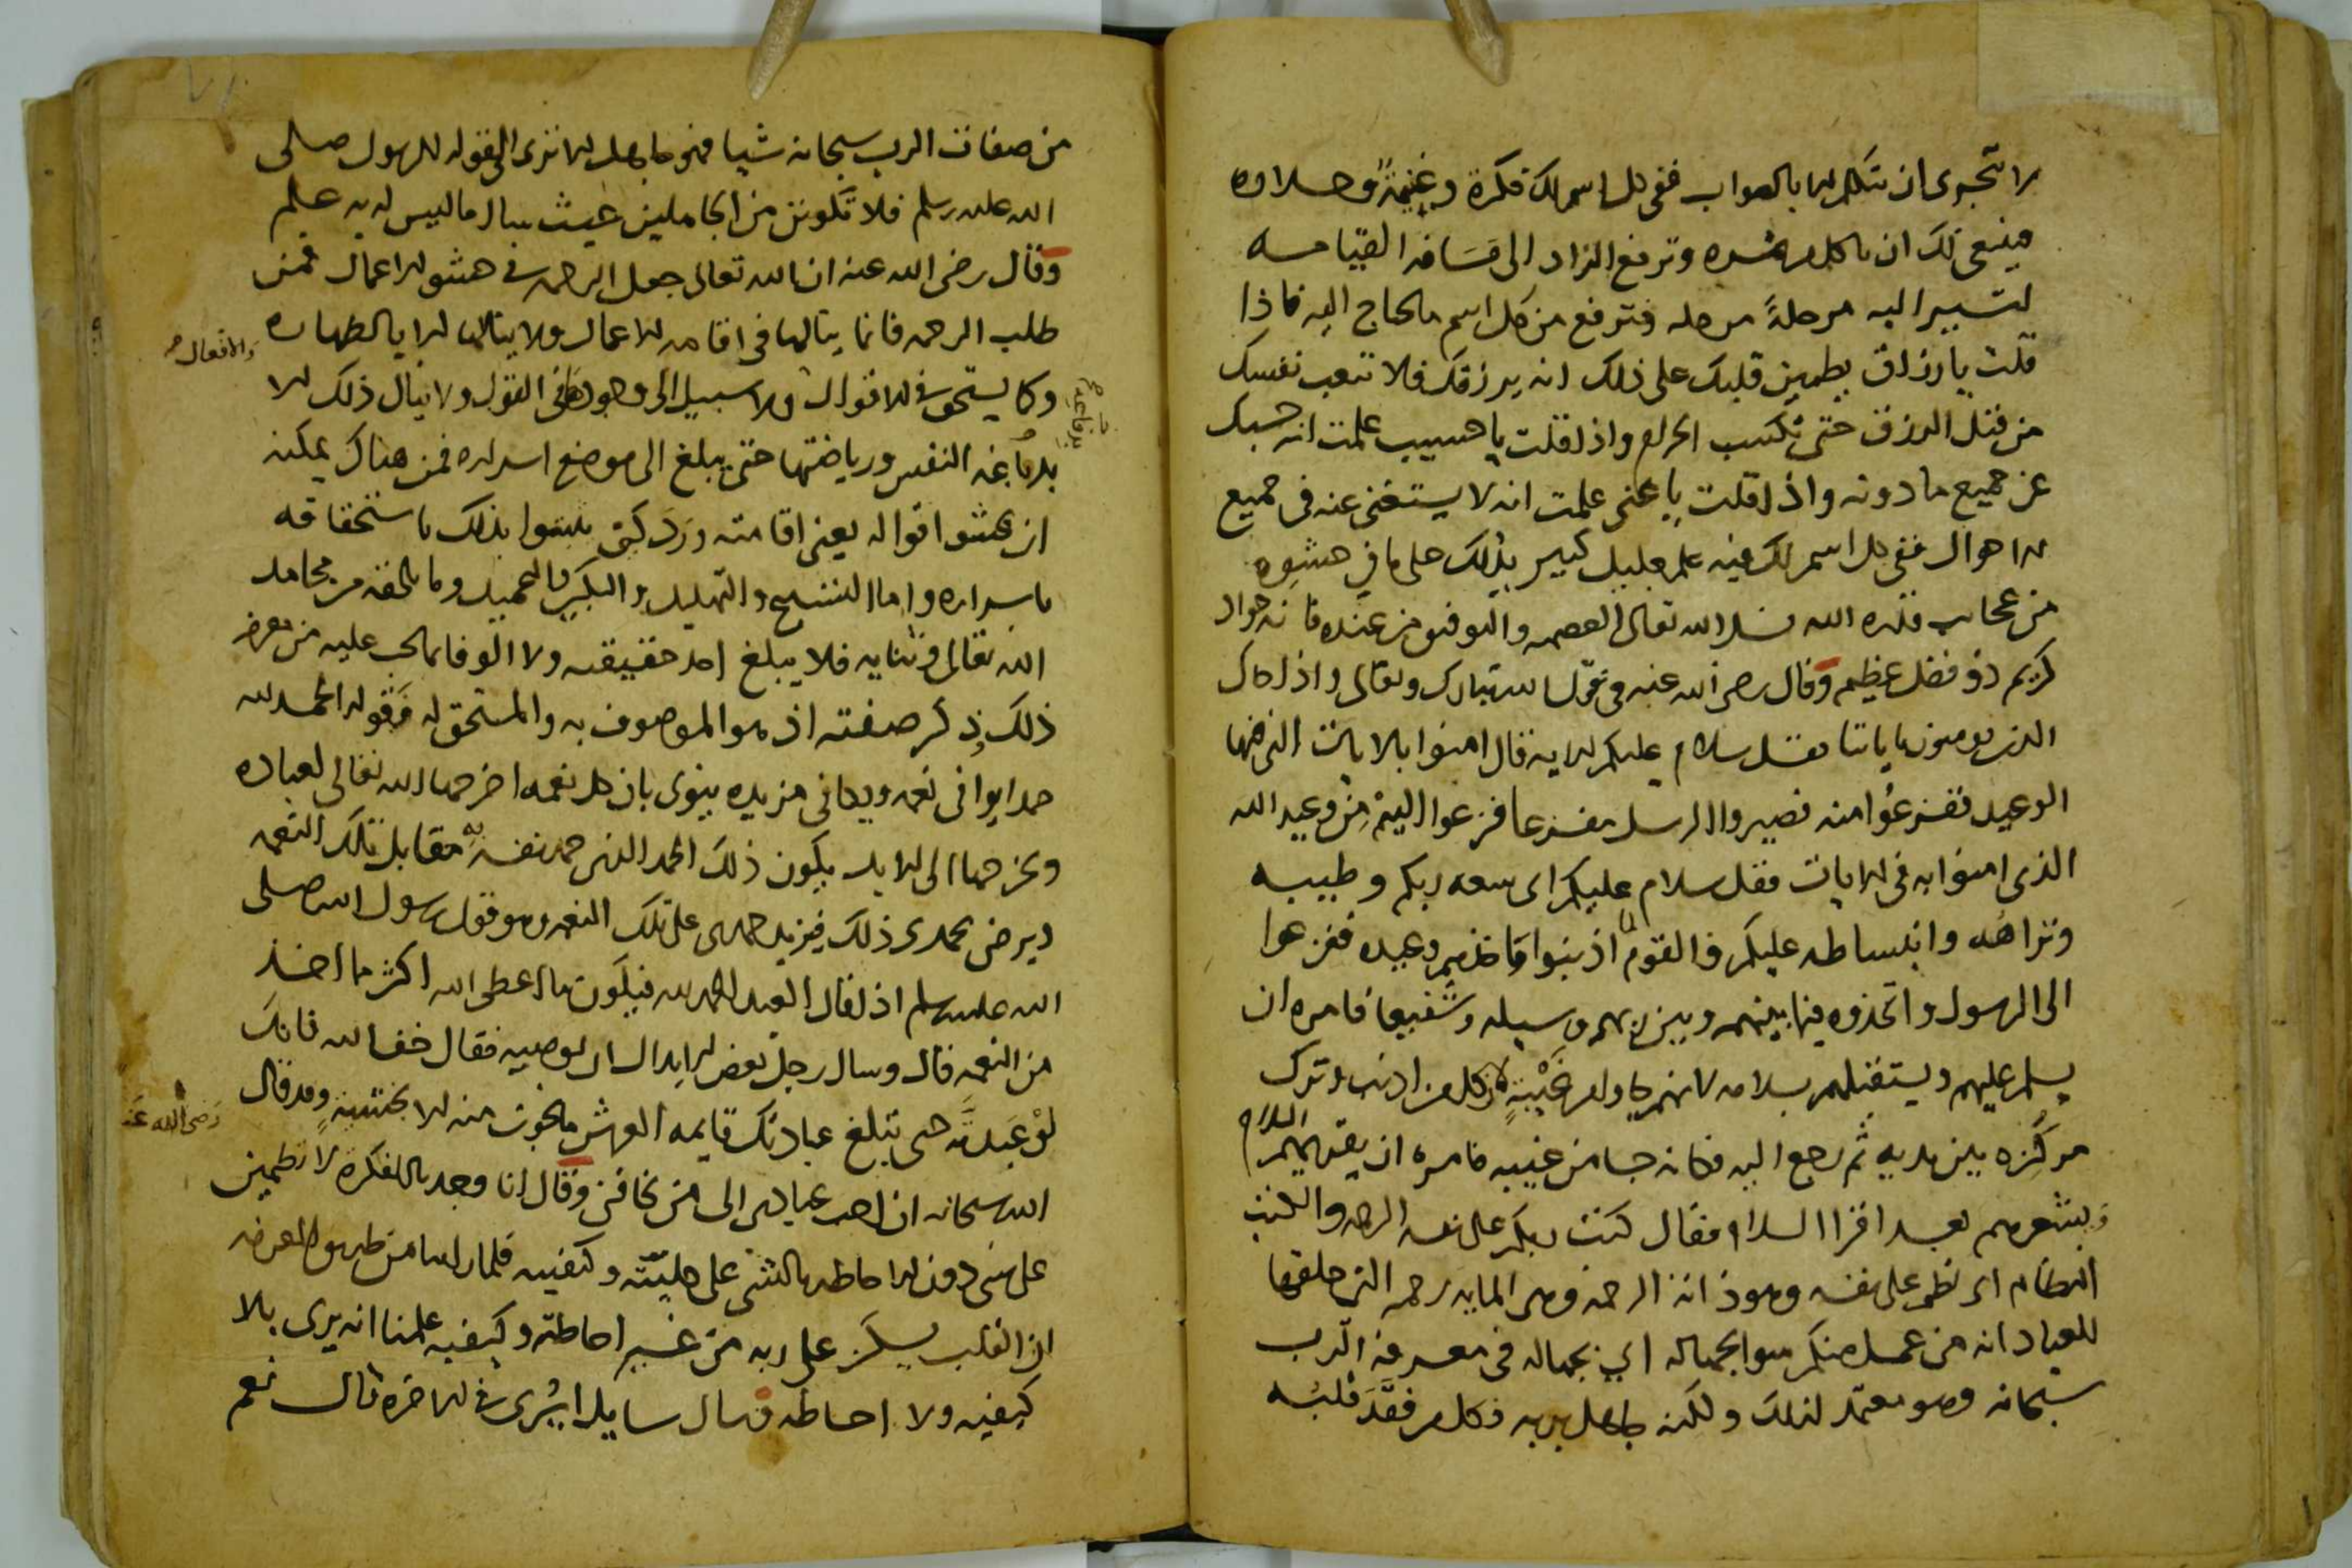 لا تجوى ان تتكلم الا بالصواب ففى كل اسم لك فكرة وغنيمةً وحلاوه
فينبغى لك ان تاكل من ثمره وترفع الزاد الى مَسَافه القيامه
لتسير اليه مرحلةً مرحله فترفع من كل اسم ما تحتاج اليه فاذا
قلت يا رزاق يطمين قلبك على ذلك انه يرزقك فلا تتعب نفسك
من قبل الرزق حتى تكسب الحرام واذا قلت يا حسيب علمت انه حسبك
عن جميع ما دونه واذا قلت يا غنى علمت انه لا يستغنى عنه فى جميع
الاحوال ففى كل اسم لك فيه علم جليل كبير يدلك على ما فى حشوه
من عجايب قدره الله نسل الله تعالى العصمه والتوفيق من عنده فانه جواد
كريم ذو فضل عظيم وقال رضى الله عنه فى قول الله تبارك وتعالى واذا جاك
الذين يومنون باياتنا فقل سلام عليكم الايه قال امنوا بالايات التى فيها
الوعيد ففزعوا منه فصيروا الرسل مفزعا فزعوا اليهم من وعيد الله
الذى امنوا به فى الايات فقل سلام عليكم اى سعه ربكم وطيبه
ونزاهته وانبساطه عليكم فالقوم لما اذنبوا فاخذهم وعيده ففزعوا
الى الرسول واتخذوه فيما بينهم وبين ربهم وسيله وشفيعا فامره ان
يسلم عليهم ويستقبلهم بسلامه لانهم جاوا من غَيْبةٍ لان كل من اذنب وترك
مركزه بين يديه ثم رجع اليه فكانه جا من غيبه فامره ان يقريهم السلام
ويبشرهم بعد اقرا السلام فقال كتب ربكم على نفسه الرحمه والكتب
النظام اى نظم على نفسه وهو ذاته الرحمه وهى المايه رحمه التى خلقها
للعباد انه من عمل منكم سوا بجهاله اي بجهاله فى معرفه الرب
سبحانه وهو معتمد لذلك ولكنه جاهل بربه فكل من فقَدَ قلبُه
من صفات الرب سبحانه شيا فهو جاهل الا ترى الى قوله للرسول صلى
الله عليه وسلم فلا تكونن من الجاهلين حيث سال ما ليس له به علم
وقال رضى الله عنه ان الله تعالى جعل الرحمه فى حشو الاعمال فمن
طلب الرحمه فانما ينالها فى اقامه الاعمال ولا ينالها الا بالطهاره
والافعال
وكما يستحق فى الاقوال ولا سبيل الى وجودها فى القول ولا ينال ذلك الا
بدباغه النفس ورياضتها حتى يبلغ الى موضع اسراره فمن هناك يمكنه
ان يحشوا اقواله يعنى اقامته ورَدَ كيف بذلك باستحقاقه
باسراره واما التسبيح والتهليل والتكبير والتحميد وما يلحقه من محامد
الله تعالى وثنايه فلا يبلغ احد حقيقته ولا الوفا بما يجب عليه من بعض
ذلك ذكر صفته اذ هو الموصوف به والمستحق له فقوله الحمد لله
حمدا يوافى نعمه ويكافى مزيده ينوى بان كل نعمه اخرجها الله تعالى لعباده
ويخرجها الى الابد يكون ذلك الحمد الذى حمد نفسه به مقابل تلك النعمه
ويرضى بحمدى ذلك فيزيد حمدى على تلك النعمه وهو قول رسول الله صلى
الله عليه وسلم اذا قال العبد الحمد لله فيكون ما اعطى الله اكثر مما اخذ
من النعمه قال وسال رجل بعض الابدال ان يوصيه فقال خف الله فانك
لوْ عَبدتَّه حتى تبلغ عبادتك قايمه العرش ما نجوت منه الا بخشيةٍ وقد قال
رضى الله عنه
الله سبحانه ان احب عبادى الى من يخافنى وقال انا وجدنا الفكره لا تطمين
على شى دون الاحاطه بالشى على هيئته وكيفيه فلما راينا من طريق المعرفه
ان القلب يسكن على ربه من غير احاطته وكيفيه علمنا انه يرى بلا
كيفيه ولا احاطه وسال سايل ايُرى فى الاخره قال نعم